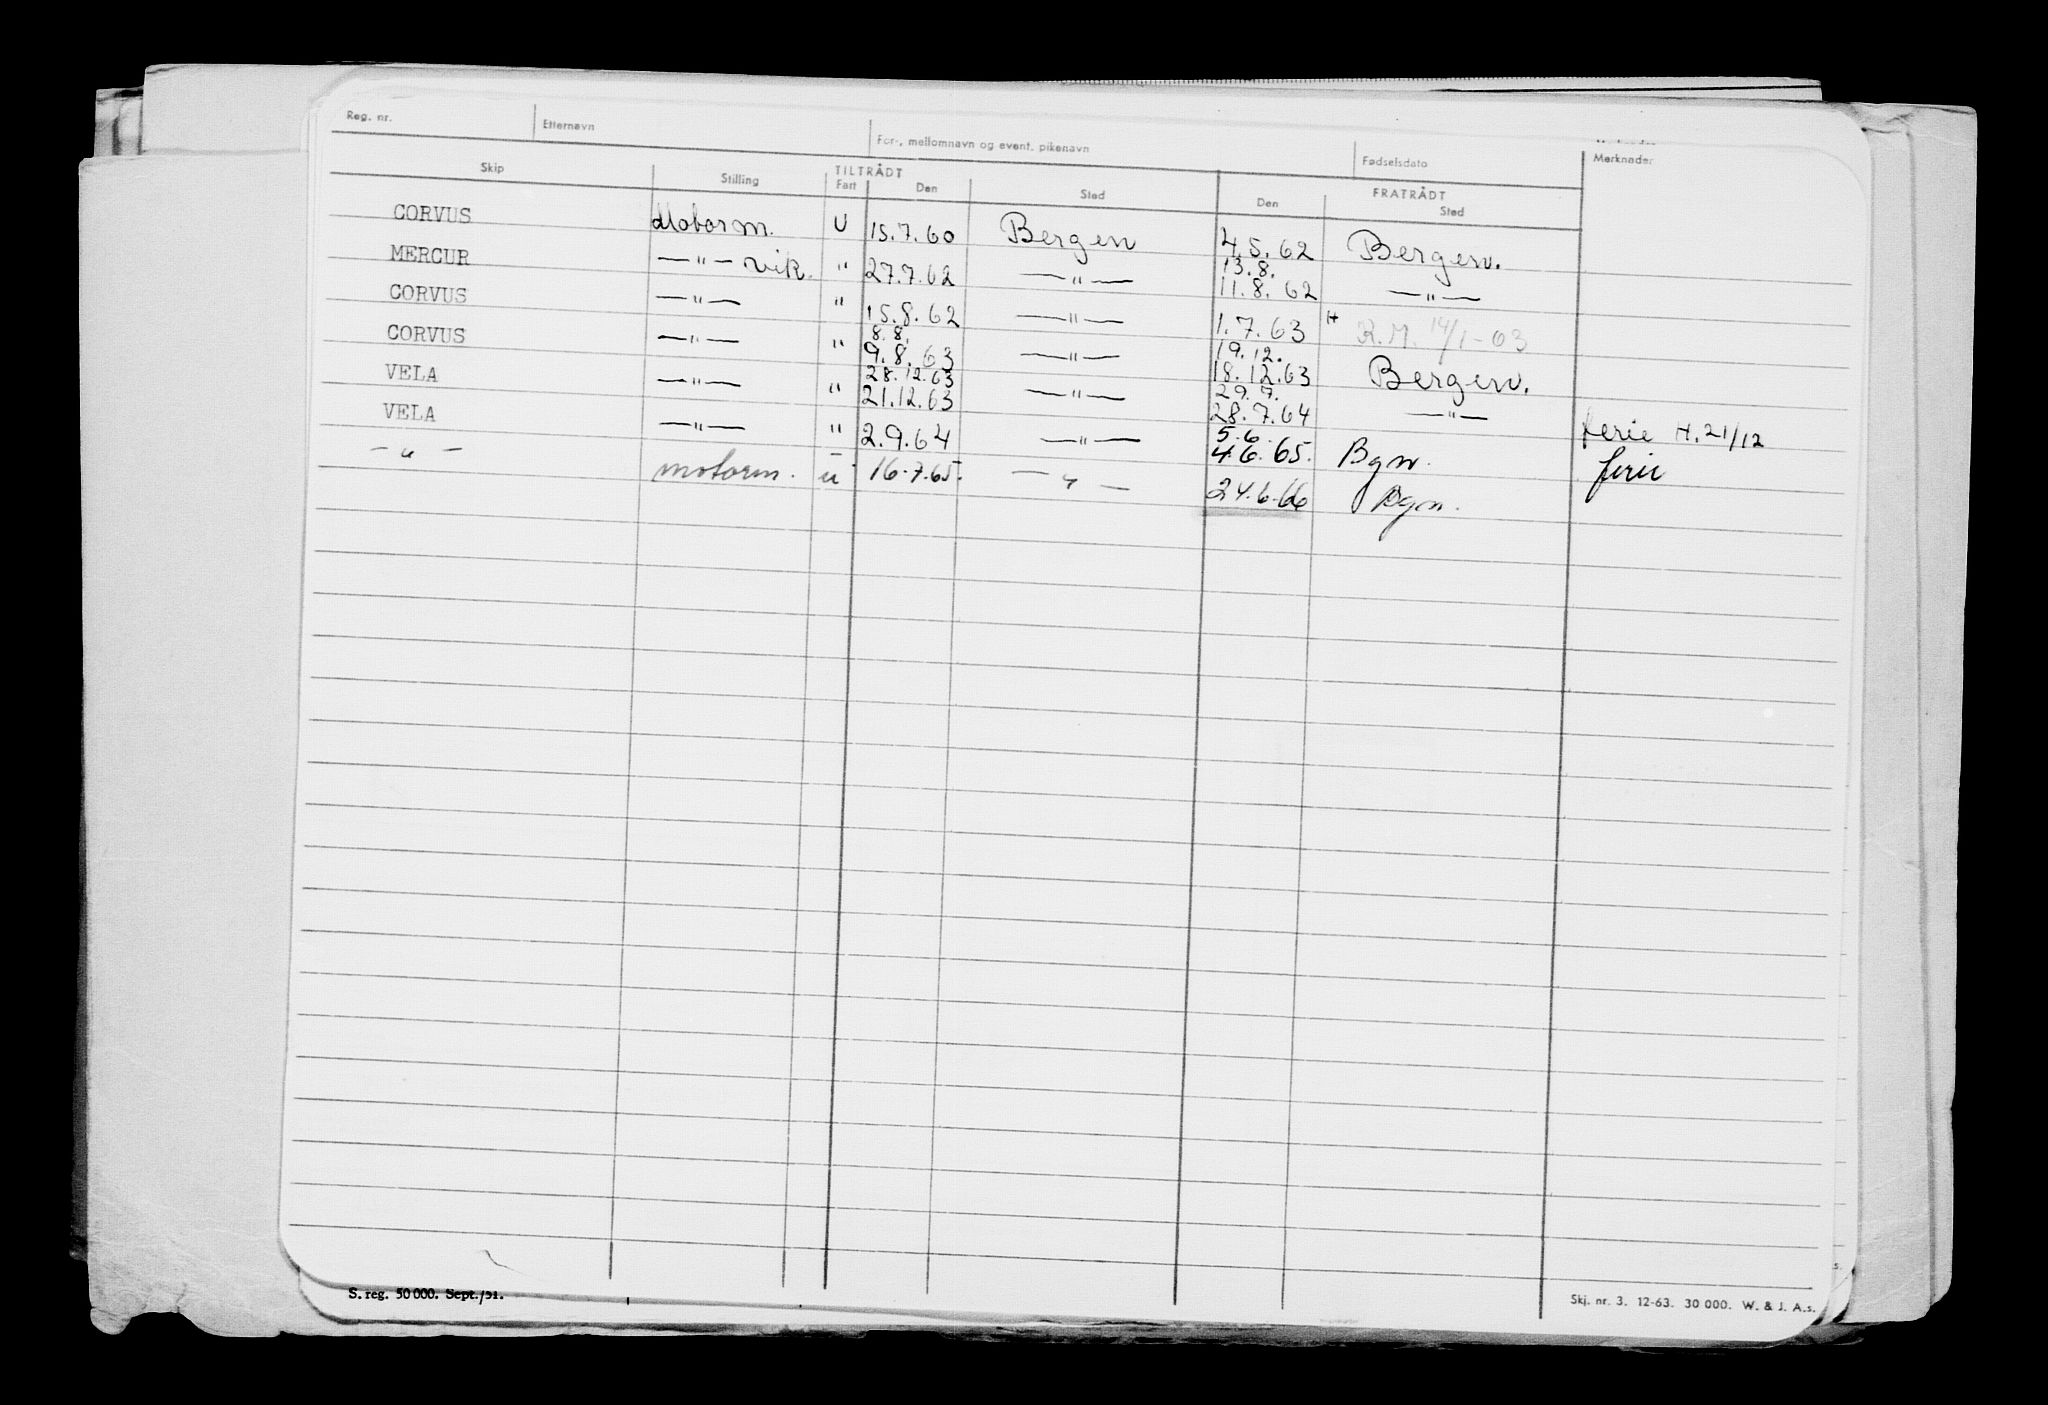 Reg. nr. Etternavn For-, mellomnavn og event. pikenavn Fødselsdato Merknader
Skip Stilling TILTRÅDT Fart Den Sted FRATRÅDT Den Sted
CORVUS Motorm. U 15.7.60 Bergen 4.5.62 Bergen.
13.8.
MERCUR —"— vik. " 27.7.62 —"— 11.8.62 —"—
CORVUS —"— " 15.8.62 —"— 1.7.63 H R.M. 14/1-63
8.8. 19.12.
CORVUS —"— " 9.8.63 —"— 18.12.63 Bergen.
28.12.63 29.7.
VELA —"— " 21.12.63 —"— 28.7.64 —"— ferie H.21/12
5.6.
VELA —"— " 2.9.64 —"— 4.6.65. Bgn. ferie
—"— motorm. u 16.7.65. —"— 24.6.66 Bgn.
S. reg. 50 000. Sept./51.
Skj. nr. 3. 12-63. 30 000. W. & J. A.s.